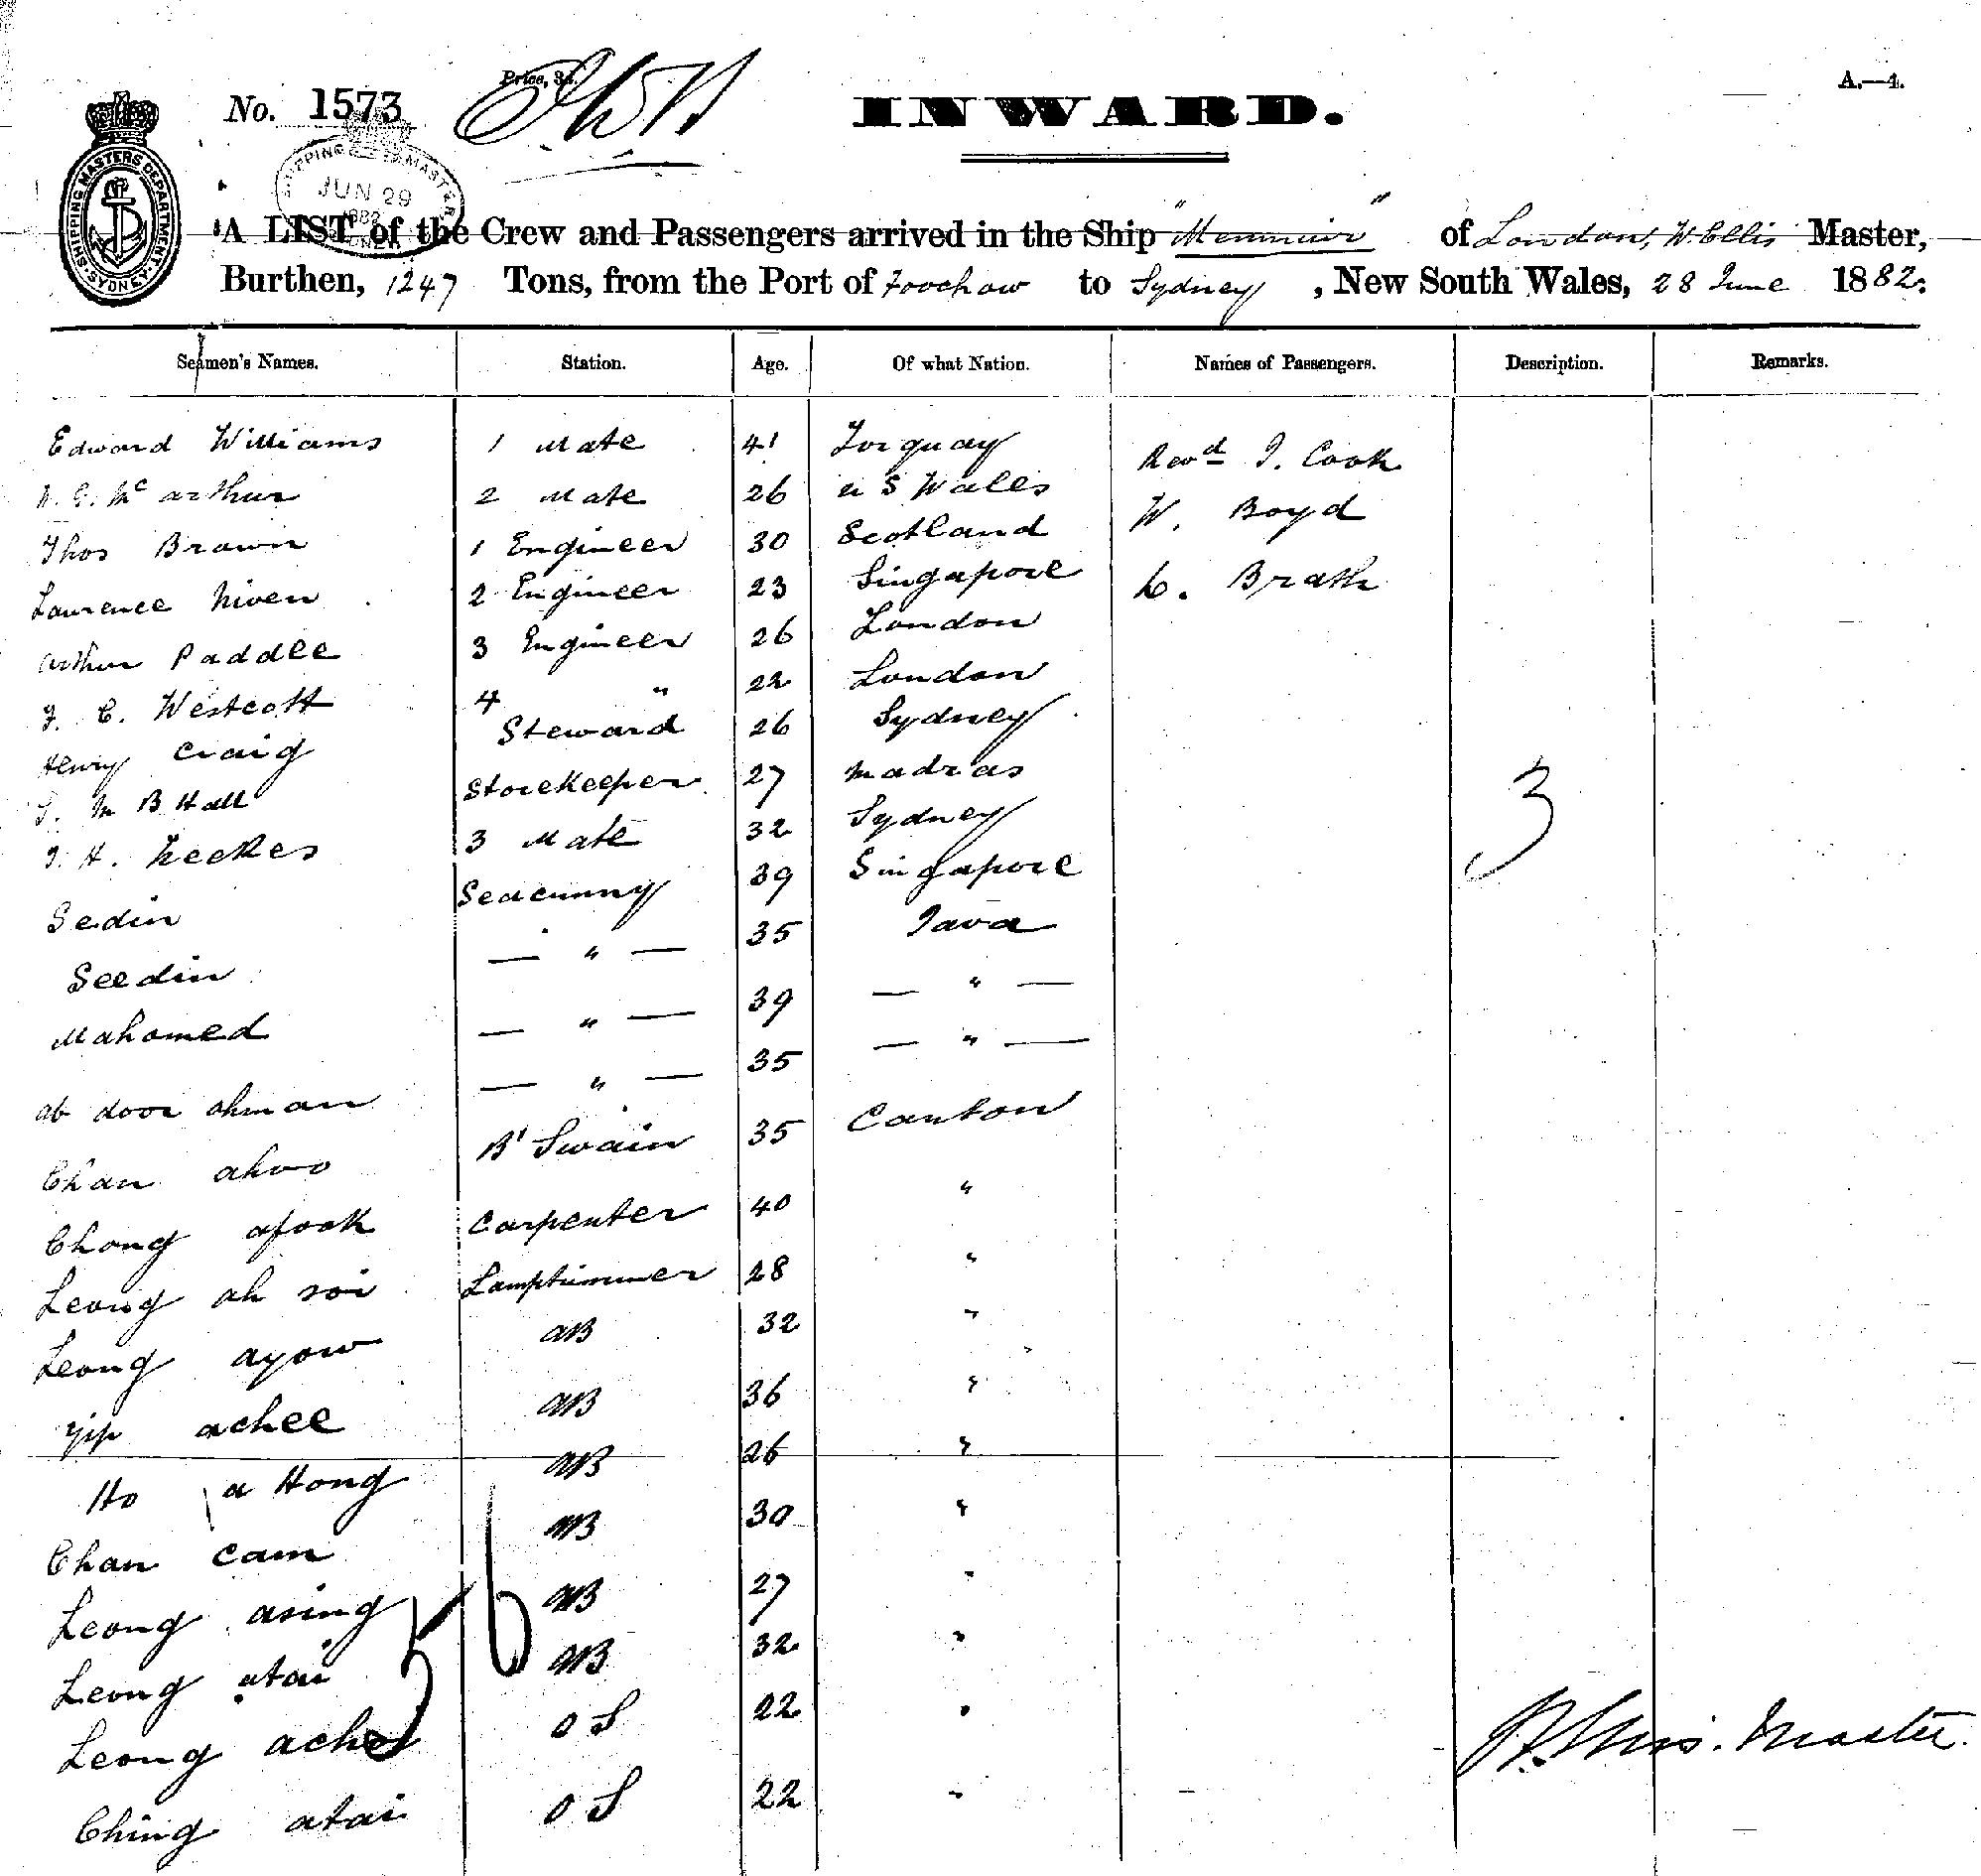 Price, 3d.
A.—4.
No. 1573
INWARD.
SHIPPING MASTERS DEPARTMENT SYDNEY
SHIPPING MASTER
JUN 29
1882
A LIST of the Crew and Passengers arrived in the Ship "Menmuir" of London, W. Ellis Master,
Burthen, 1247 Tons, from the Port of Foochow to Sydney, New South Wales, 28 June 1882.
Seamen's Names. Station. Age. Of what Nation. Names of Passengers. Description. Remarks.
Edward Williams 1 Mate 41 Torquay Revd J. Cook
Mc arthur 2 Mate 26 N S Wales W. Boyd
Thos Brown 1 Engineer 30 Scotland
Laurence Niven 2 Engineer 23 Singapore Brath
Arthur Paddle 3 Engineer 26 London
F. C. Westcott 4 " 22 London
Henry Craig Steward 26 Sydney
M B Hall Storekeeper 27 Madras
H. 3 Mate 32 Sydney
Sedin Seacunny 39 Singapore
Seedin — " — 35 Java
Mahomed — " — 39 — " —
ab door ahman — " — 35 — " —
Chan ahoo B' Swain 35 Canton
Chong afook Carpenter 40 "
Leong ah soi Lamptrimmer 28 "
Leong ayow AB 32 "
Yip achee AB 36 "
Ho a Hong AB 26 "
Chan cam AB 30 "
Leong asing AB 27 "
Leong atai AB 32 "
Leong O S 22 "
Ching atai O S 22 "
3
W. Ellis. Master.